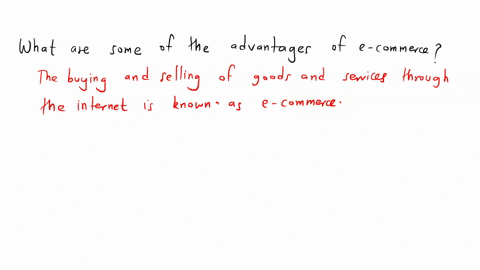 What are some of the advantages of e-commerce?
The buying and selling of goods and services through
the internet is known. as e-commerce.